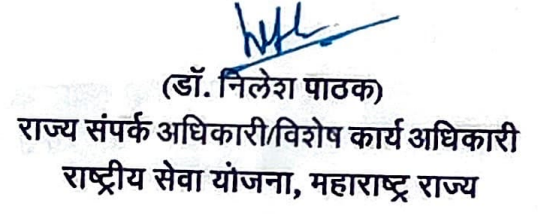 (डॉ. निलेश पाठक)
राज्य संपर्क अधिकारी/विशेष कार्य अधिकारी
राष्ट्रीय सेवा योजना, महाराष्ट्र राज्य